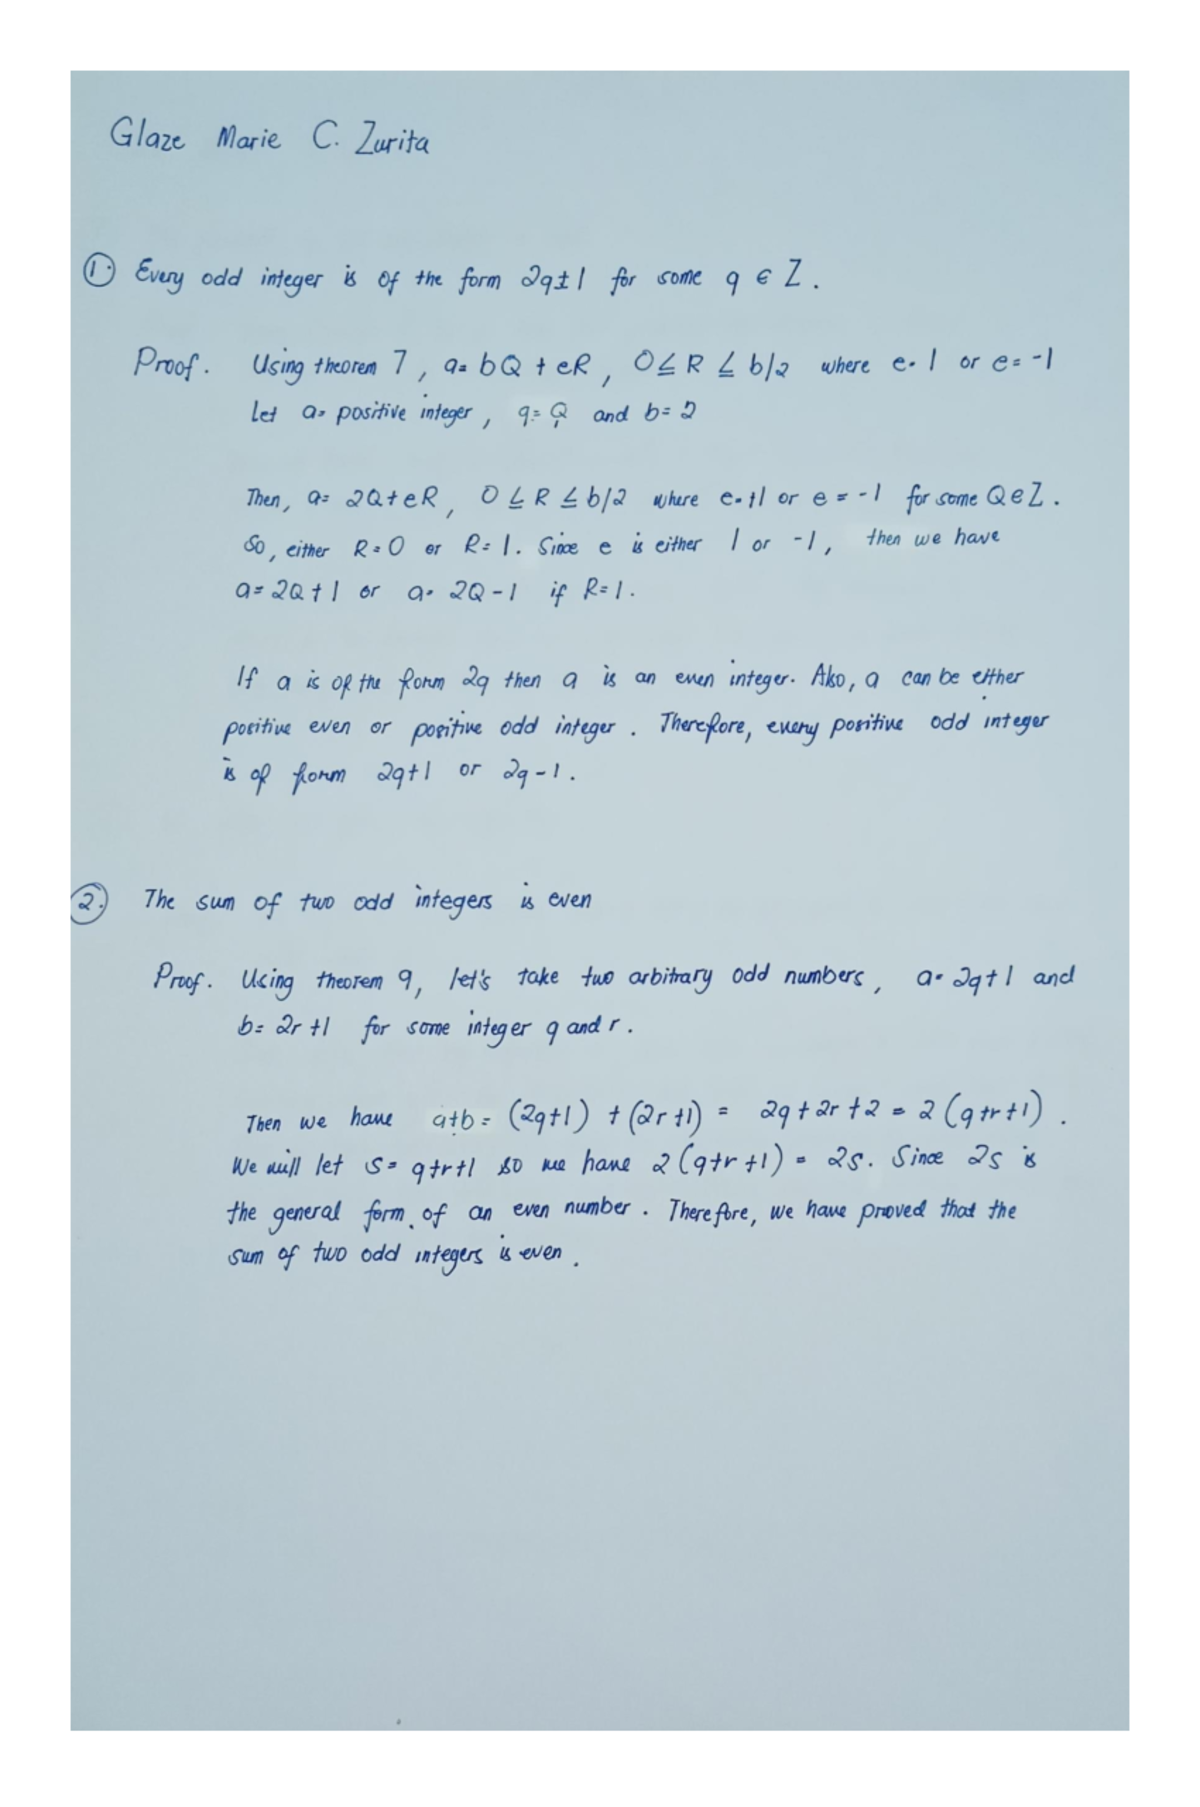 Glaze Marie C. Zurita
1. Every odd integer is of the form 2q±1 for some q ∈ Z.
Proof. Using theorem 7, a= bQ + eR, 0≤R≤b/2 where e=1 or e=-1
Let a= positive integer, q=Q and b=2
Then, a= 2Q+eR, 0≤R≤b/2 where e=+1 or e=-1 for some Q∈Z.
So, either R=0 or R=1. Since e is either 1 or -1, then we have
a=2Q+1 or a=2Q-1 if R=1.
If a is of the form 2q then a is an even integer. Also, a can be either
positive even or positive odd integer. Therefore, every positive odd integer
is of form 2q+1 or 2q-1.
2. The sum of two odd integers is even
Proof. Using theorem 9, let's take two arbitrary odd numbers, a=2q+1 and
b=2r+1 for some integer q and r.
Then we have a+b= (2q+1) + (2r+1) = 2q+2r+2 = 2(q+r+1).
We will let s=q+r+1 so we have 2(q+r+1) = 2s. Since 2s is
the general form of an even number. Therefore, we have proved that the
sum of two odd integers is even.